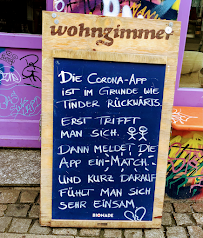 wohnzimmer
DIE CORONA-APP
IST IM GRUNDE WIE
TINDER RÜCKWÄRTS.
ERST TRIFFT
MAN SICH.
DANN MELDET DIE
APP EIN MATCH.
UND KURZ DARAUF
FÜHLT MAN SICH
SEHR EINSAM
BIONADE